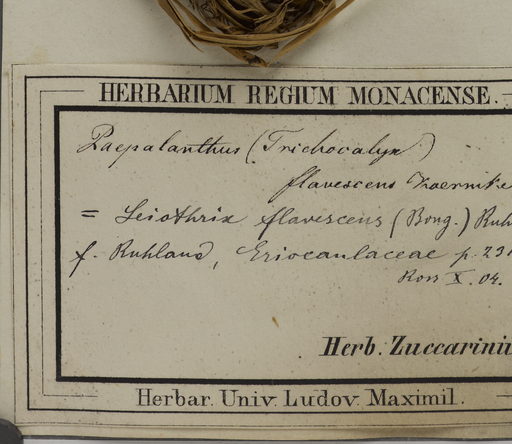 HERBARIUM REGIUM MONACENSE.
Paepalanthus (Trichocalyx)
flavescens Koernike
= Leiothrix flavescens (Bong.) Ruh
f. Ruhland, Eriocaulaceae p. 231
Ross X. 04.
Herb. Zuccarinii
Herbar. Univ. Ludov. Maximil.